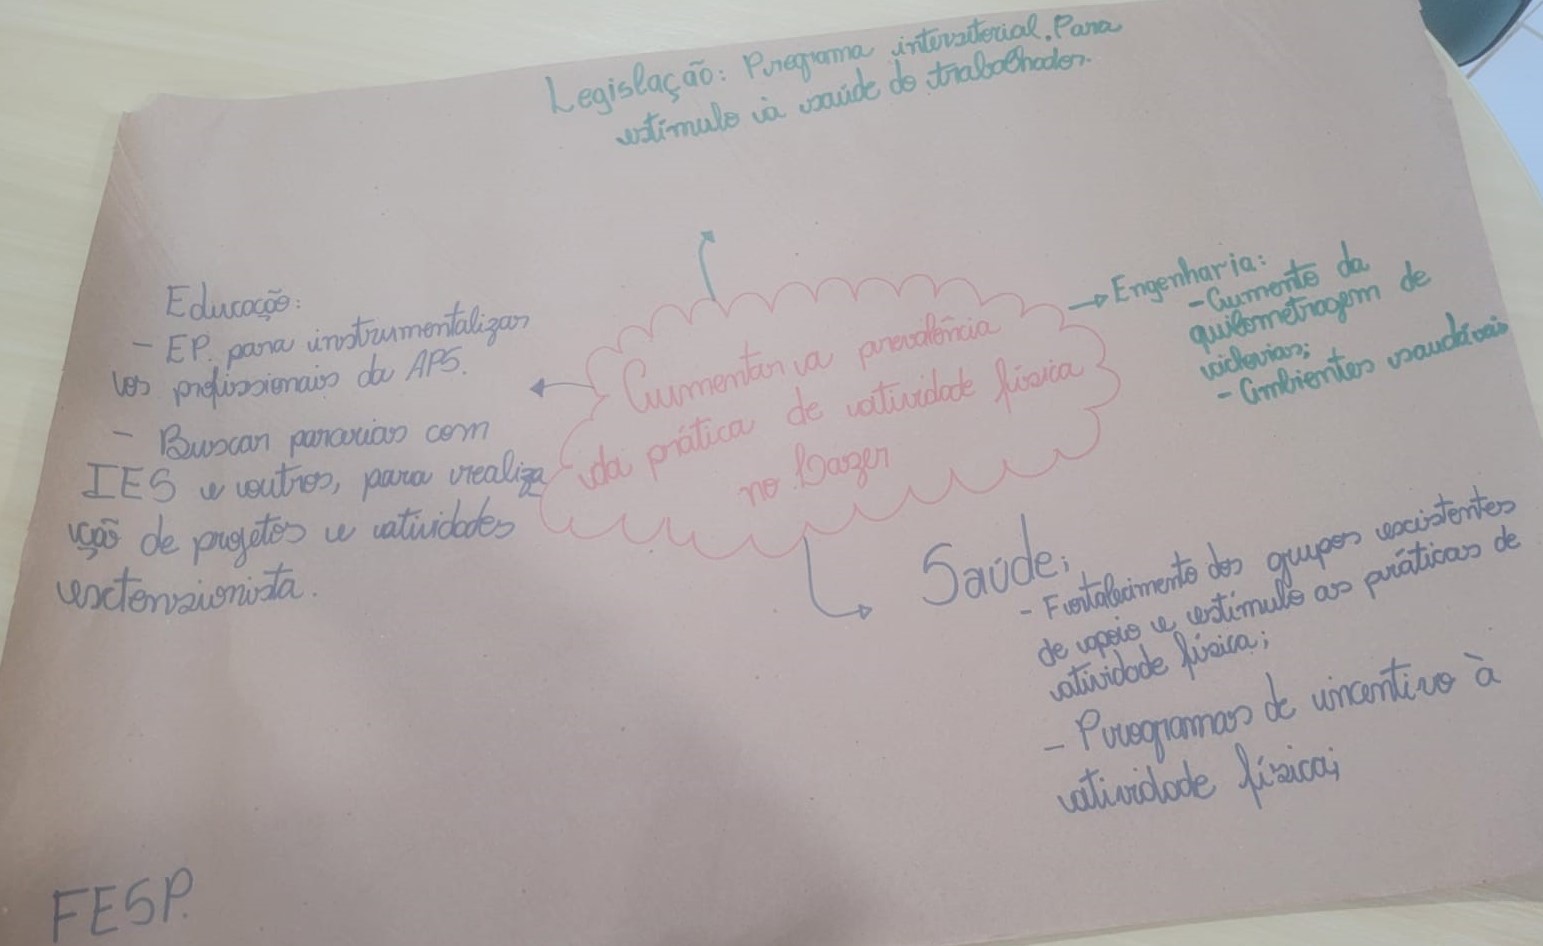 Legislação: Programa intersetorial. Para
estímulo à saúde do trabalhador.
Educação:
- EP. para instrumentalizar
os profissionais da APS.
- Buscar parcerias com
IES e outros, para realiza
ção de projetos e atividades
extensionista.
Aumentar a prevalência
da prática de atividade física
no lazer
Engenharia:
- Aumento da
quilometragem de
ciclovias;
- Ambientes saudáveis
Saúde;
- Fortalecimento dos grupos existentes
de apoio e estímulo as práticas de
atividade física;
- Programas de incentivo à
atividade física;
FESP.